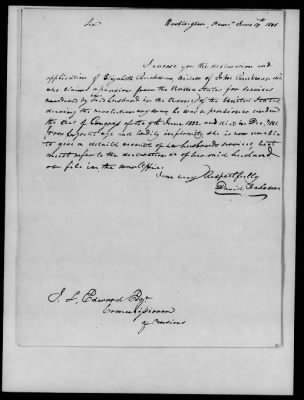 Sir Washington, Penna June 17th 1845
I enclose you the declaration and
application of Elizabeth widow of John
who claims a pension from the United States for services
rendered by said husband in the Army of the United States
during the revolutionary war he was a pensioner under
the Act of Congress of the 7th June 1832 and died in Dec. 1841
from her great age and bodily infirmity she is now unable
to give a detail account of her husbands services, but
must refer to the declaration of her said husband
on file in the War Office.
Respectfully
David
J. L. Edward Esqr
Commissioner
of Pensions